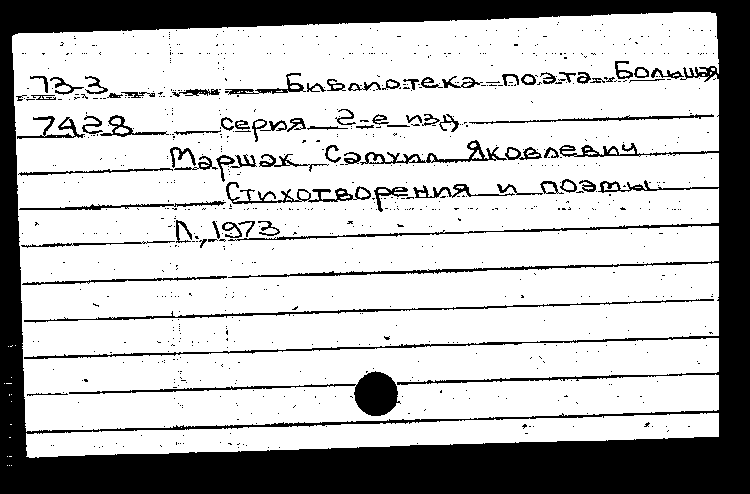 73-3 Библиотека поэта. Большая
7428 серия 2-е изд.
Маршак, Самуил Яковлевич
Стихотворения и поэмы.
Л., 1973